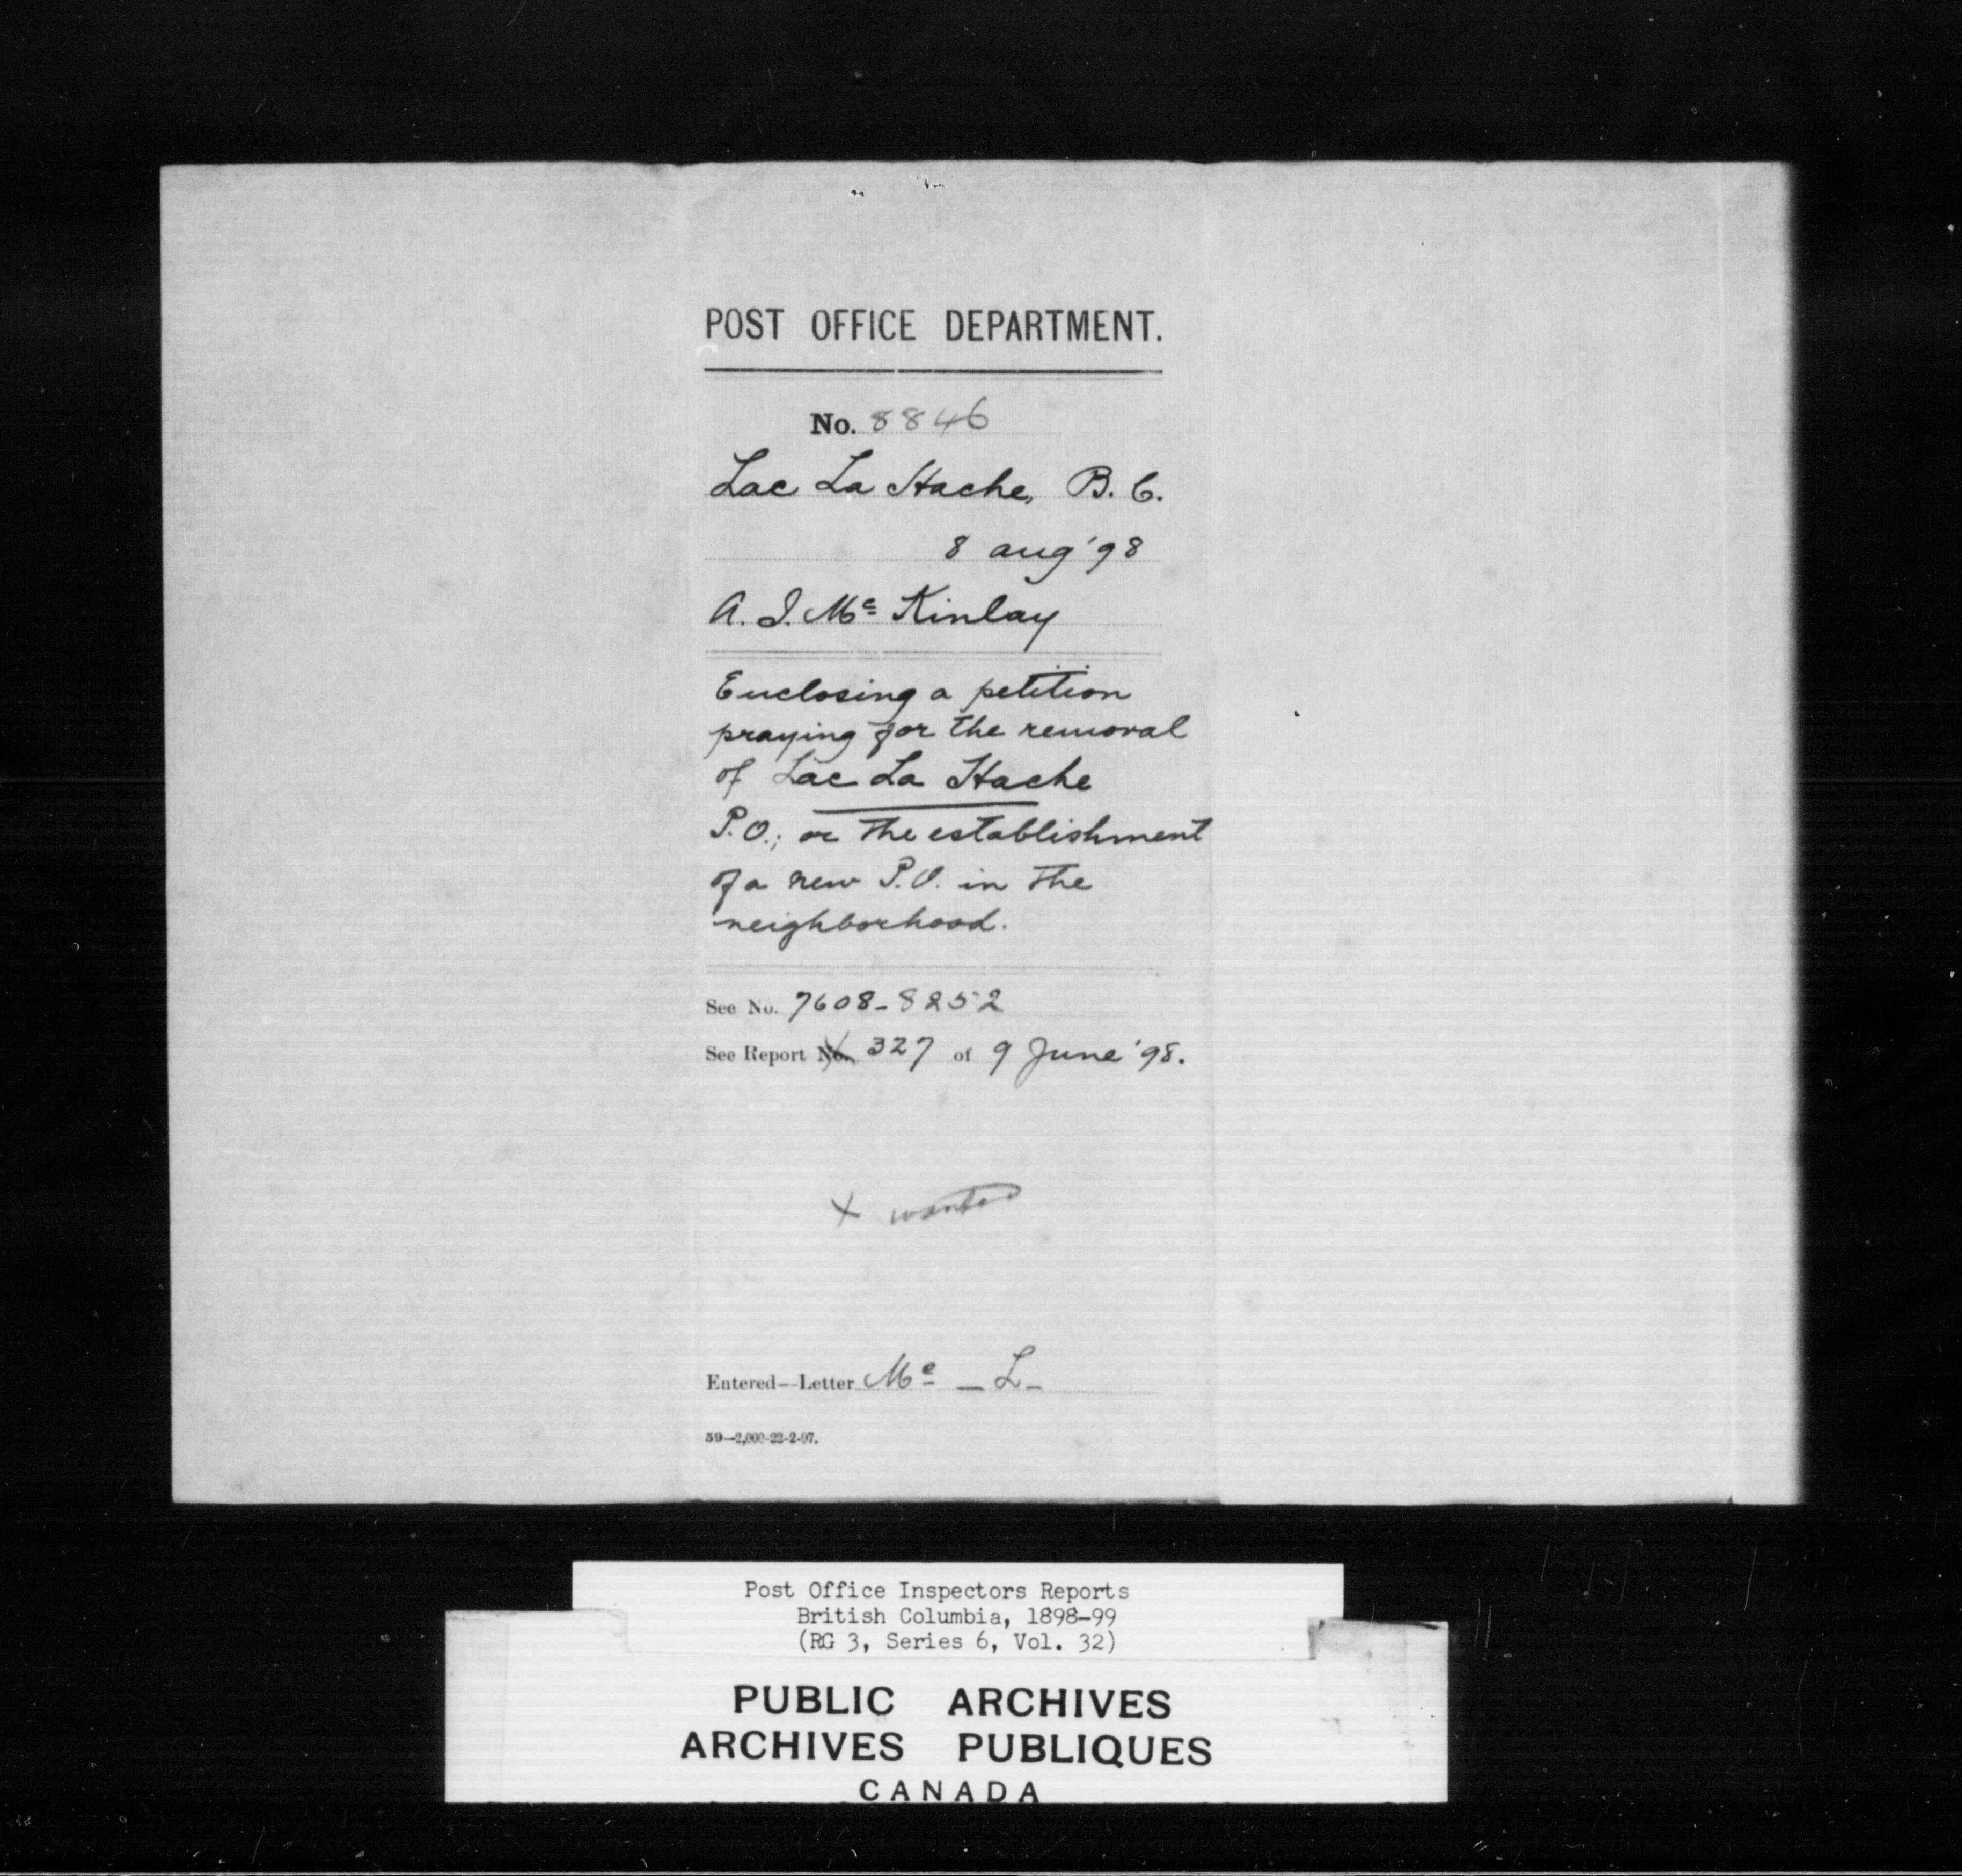 POST OFFICE DEPARTMENT.
No. 8846
Lac La Hache, B.C.
8 aug '98
A. I. Mc Kinlay
Enclosing a petition
praying for the removal
of Lac La Hache
P.O.; or the establishment
of a new P.O. in the
neighborhood.
See No. 7608-8252
See Report No. 327 of 9 June '98.
x wanted
Entered—Letter Mc - L -
59—2,000-22-2-97.
Post Office Inspectors Reports
British Columbia, 1898-99
(RG 3, Series 6, Vol. 32)
PUBLIC ARCHIVES
ARCHIVES PUBLIQUES
CANADA